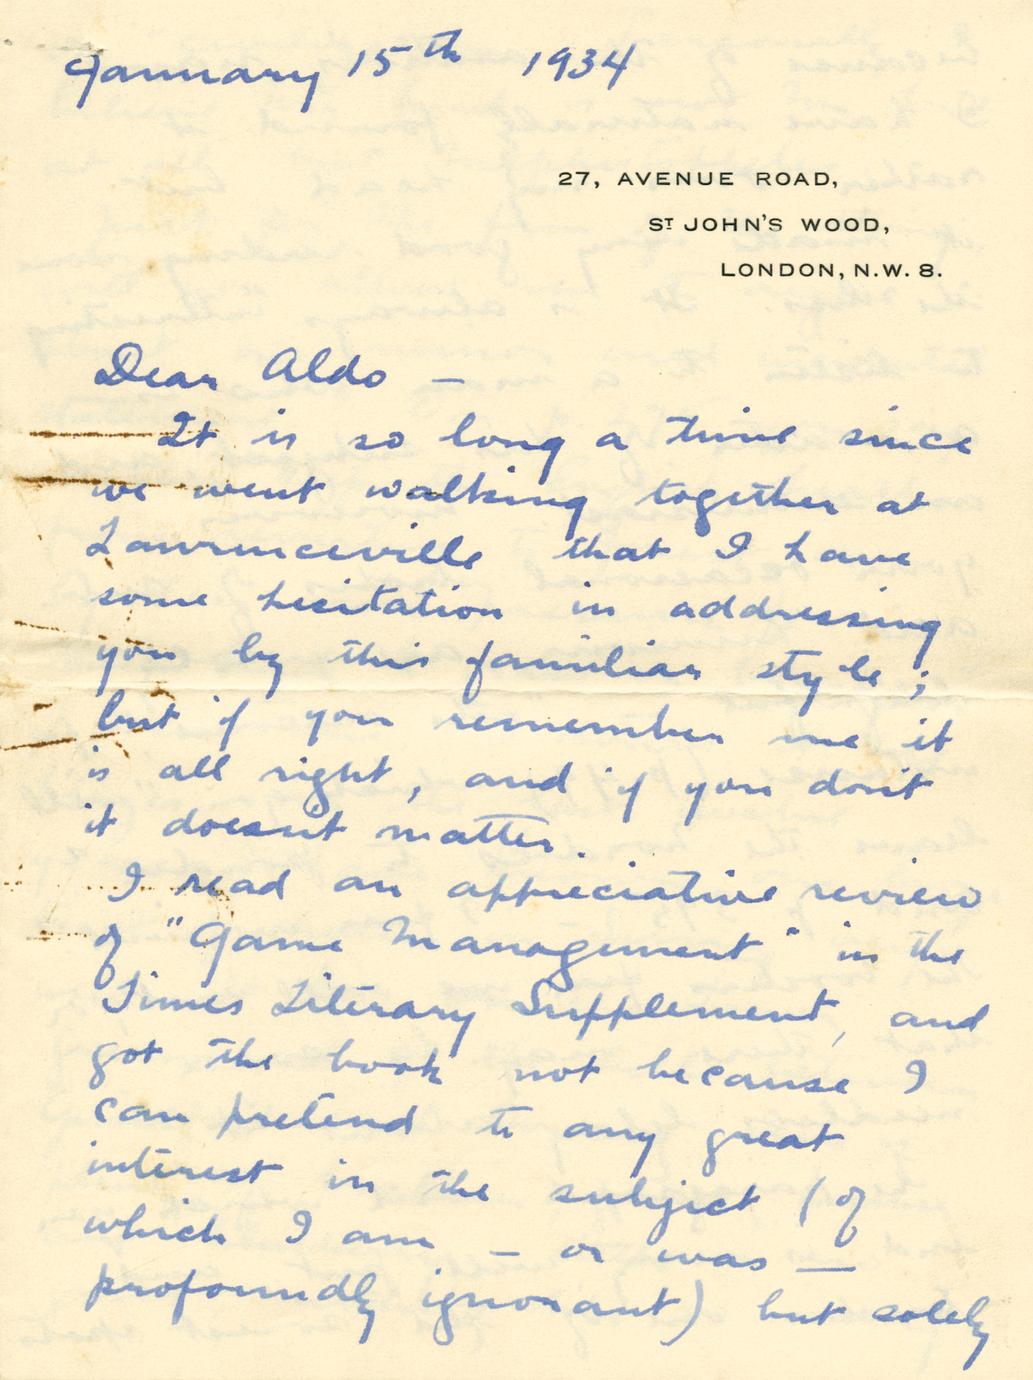 January 15th 1934
27, AVENUE ROAD,
ST JOHN'S WOOD,
LONDON, N.W. 8.
Dear Aldo —
It is so long a time since
we went walking together at
Lawrenceville that I have
some hesitation in addressing
you by this familiar style;
but if you remember me it
is all right, and if you don't
it doesn't matter.
I read an appreciative review
of "Game Management" in the
Times Literary Supplement, and
got the book not because I
can pretend to any great
interest in the subject (of
which I am — or was —
profoundly ignorant) but solely